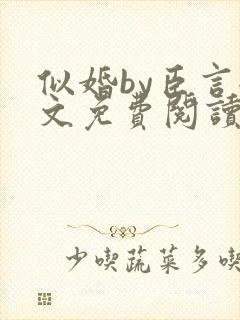 似婚by臣言
文免費閱讀
少喫蔬菜多喫